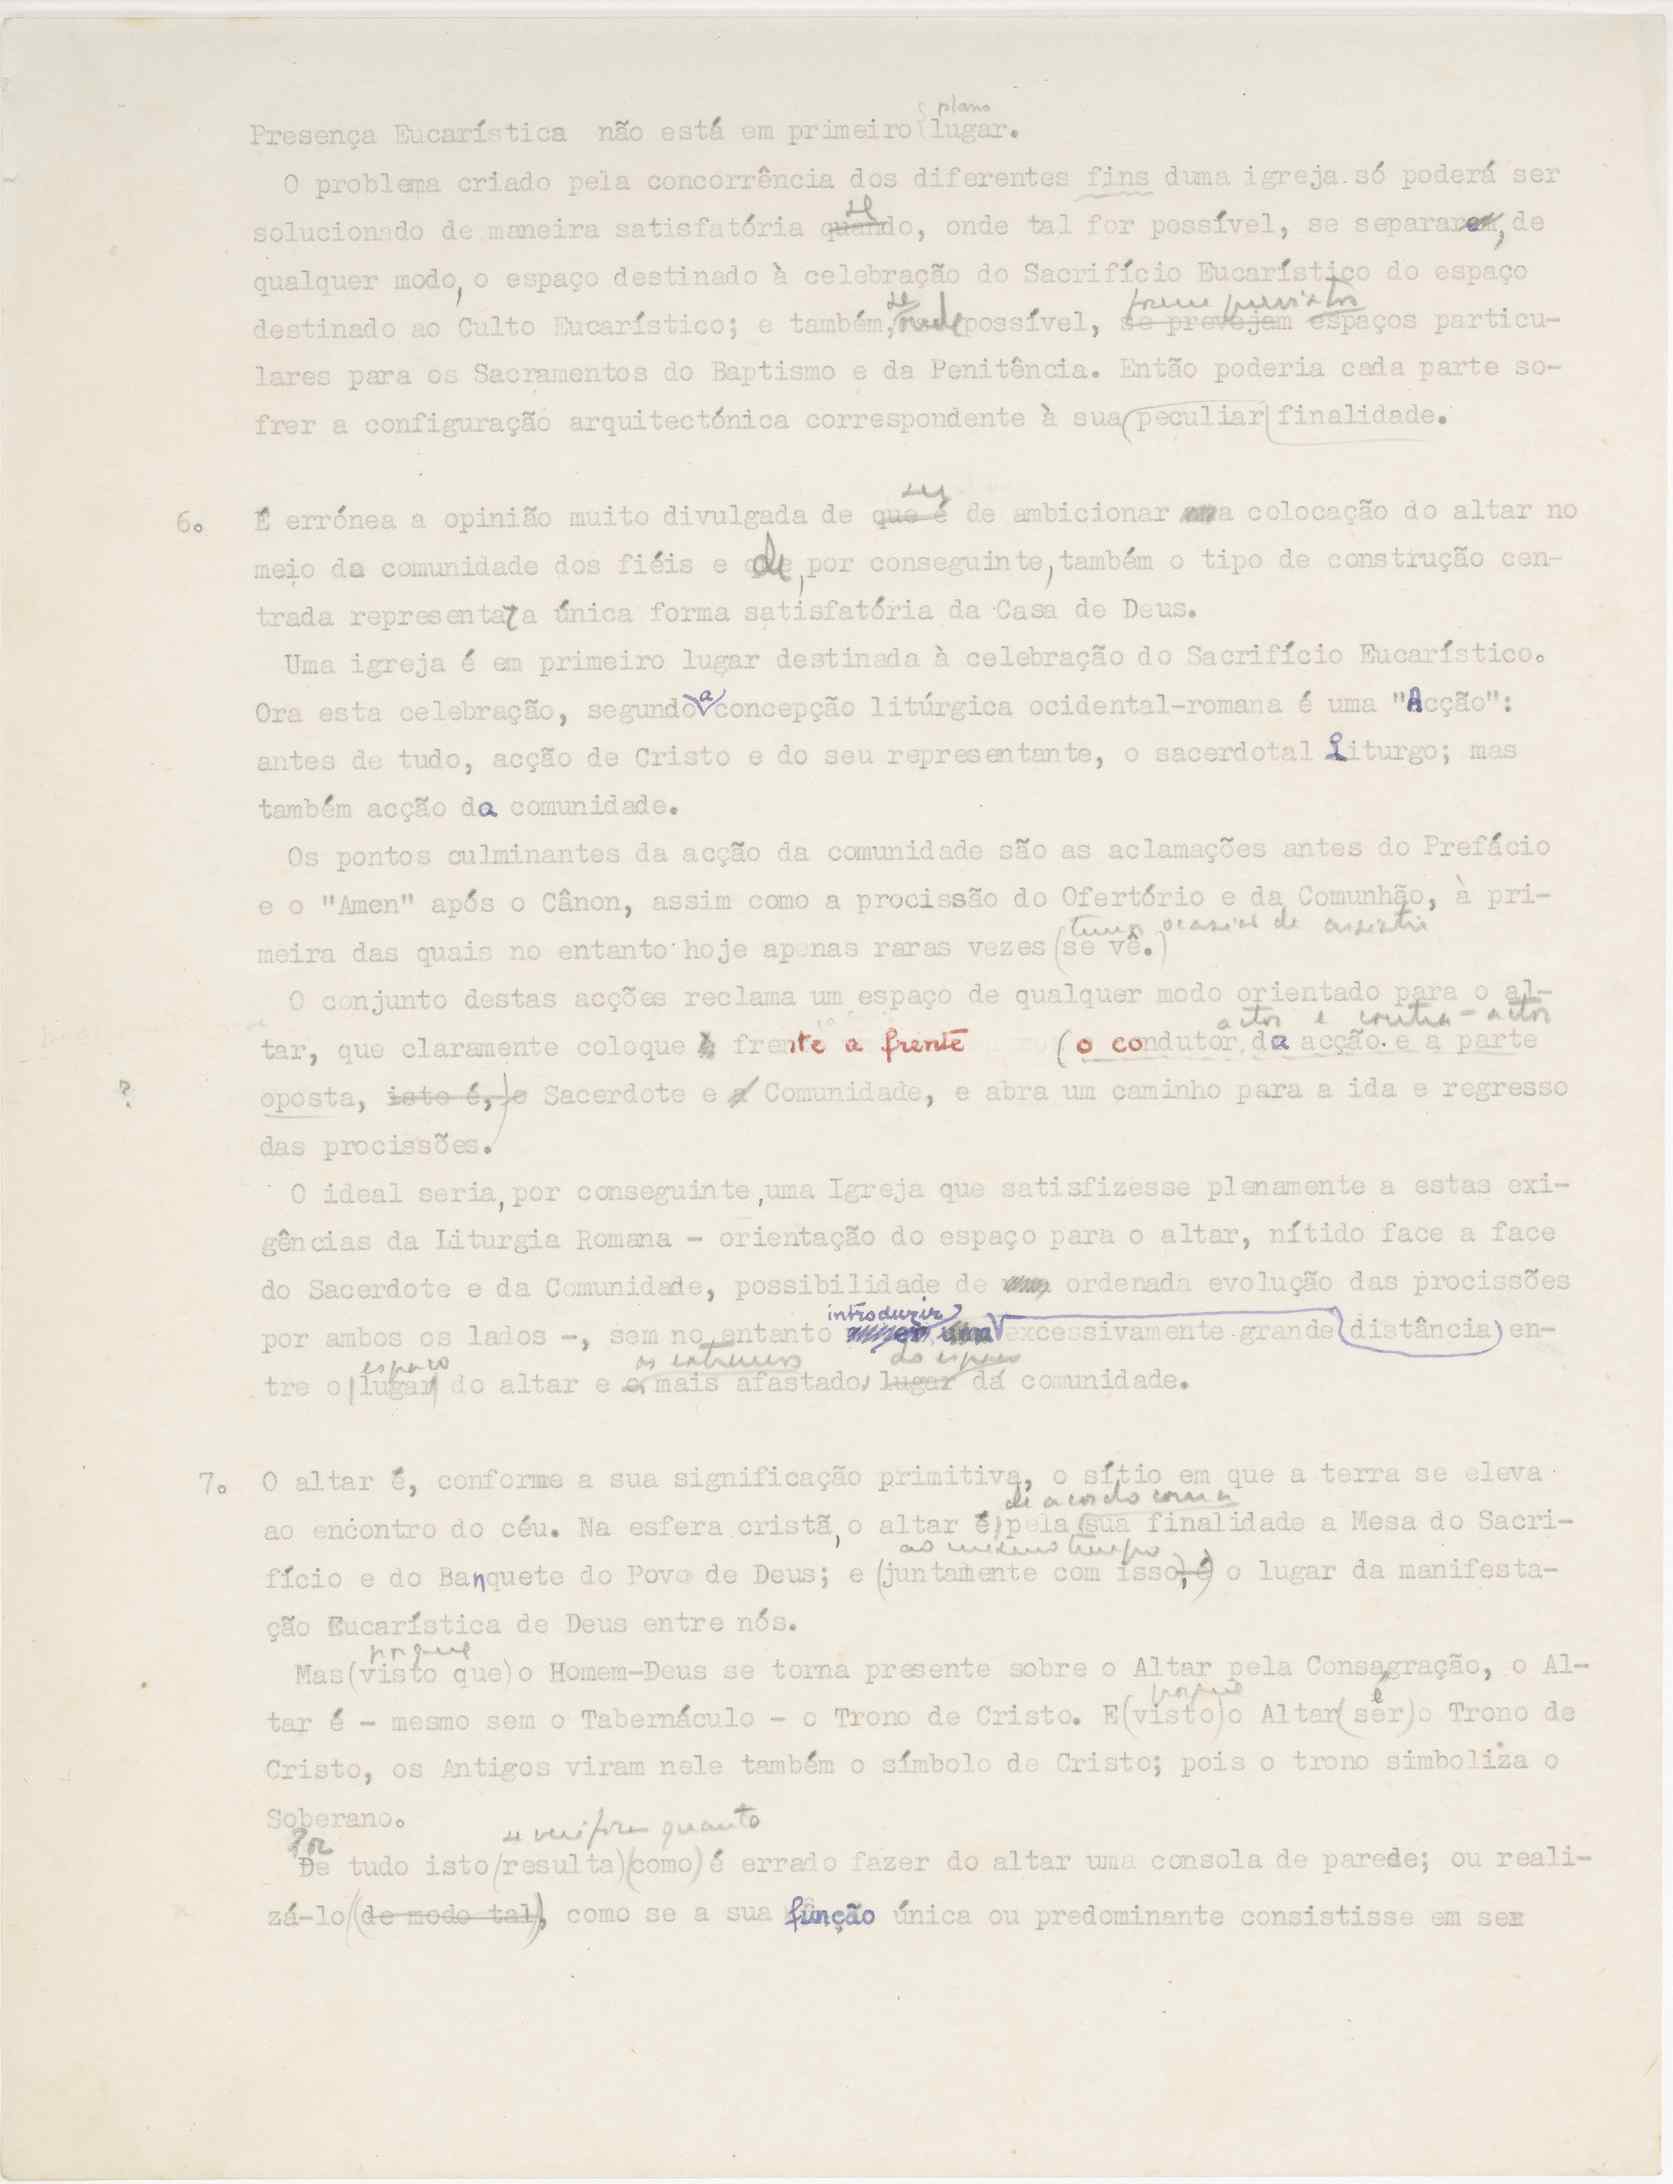 plano
Presença Eucarística não está em primeiro lugar.
O problema criado pela concorrência dos diferentes fins duma igreja só poderá ser
se
solucionado de maneira satisfatória quando, onde tal for possível, se separarem, de
qualquer modo, o espaço destinado à celebração do Sacrifício Eucarístico do espaço
se forem previstos
destinado ao Culto Eucarístico; e também, onde possível, se prevejam espaços particu-
lares para os Sacramentos do Baptismo e da Penitência. Então poderia cada parte so-
frer a configuração arquitectónica correspondente à sua (peculiar) finalidade.
ser
6. É errónea a opinião muito divulgada de que é de ambicionar uma colocação do altar no
meio da comunidade dos fiéis e de, por conseguinte, também o tipo de construção cen-
trada representar a única forma satisfatória da Casa de Deus.
Uma igreja é em primeiro lugar destinada à celebração do Sacrifício Eucarístico.
Ora esta celebração, segundo a concepção litúrgica ocidental-romana é uma "Acção":
antes de tudo, acção de Cristo e do seu representante, o sacerdotal Liturgo; mas
também acção da comunidade.
Os pontos culminantes da acção da comunidade são as aclamações antes do Prefácio
e o "Amen" após o Cânon, assim como a procissão do Ofertório e da Comunhão, à pri-
temos ocasião de assistir
meira das quais no entanto hoje apenas raras vezes (se vê.)
O conjunto destas acções reclama um espaço de qualquer modo orientado para o al-
actor e contra-actor
tar, que claramente coloque frente a frente (o condutor da acção e a parte
? oposta, isto é,) o Sacerdote e a Comunidade, e abra um caminho para a ida e regresso
das procissões.
O ideal seria, por conseguinte, uma Igreja que satisfizesse plenamente a estas exi-
gências da Liturgia Romana - orientação do espaço para o altar, nítido face a face
do Sacerdote e da Comunidade, possibilidade de ordenada evolução das procissões
introduzir
por ambos os lados -, sem no entanto uma excessivamente grande (distância) en-
espaço os extremos do espaço
tre o (lugar) do altar e o mais afastado lugar da comunidade.
7. O altar é, conforme a sua significação primitiva, o sítio em que a terra se eleva
de acordo com a
ao encontro do céu. Na esfera cristã, o altar é, pela (sua finalidade a Mesa do Sacri-
ao mesmo tempo
fício e do Banquete do Povo de Deus; e (juntamente com isso, é) o lugar da manifesta-
ção Eucarística de Deus entre nós.
porque
Mas (visto que) o Homem-Deus se torna presente sobre o Altar pela Consagração, o Al-
porque é
tar é - mesmo sem o Tabernáculo - o Trono de Cristo. E (visto) o Altar (ser) o Trono de
Cristo, os Antigos viram nele também o símbolo de Cristo; pois o trono simboliza o
Soberano.
Por se verifica quanto
De tudo isto (resulta) (como) é errado fazer do altar uma consola de parede; ou reali-
zá-lo (de modo tal), como se a sua função única ou predominante consistisse em ser